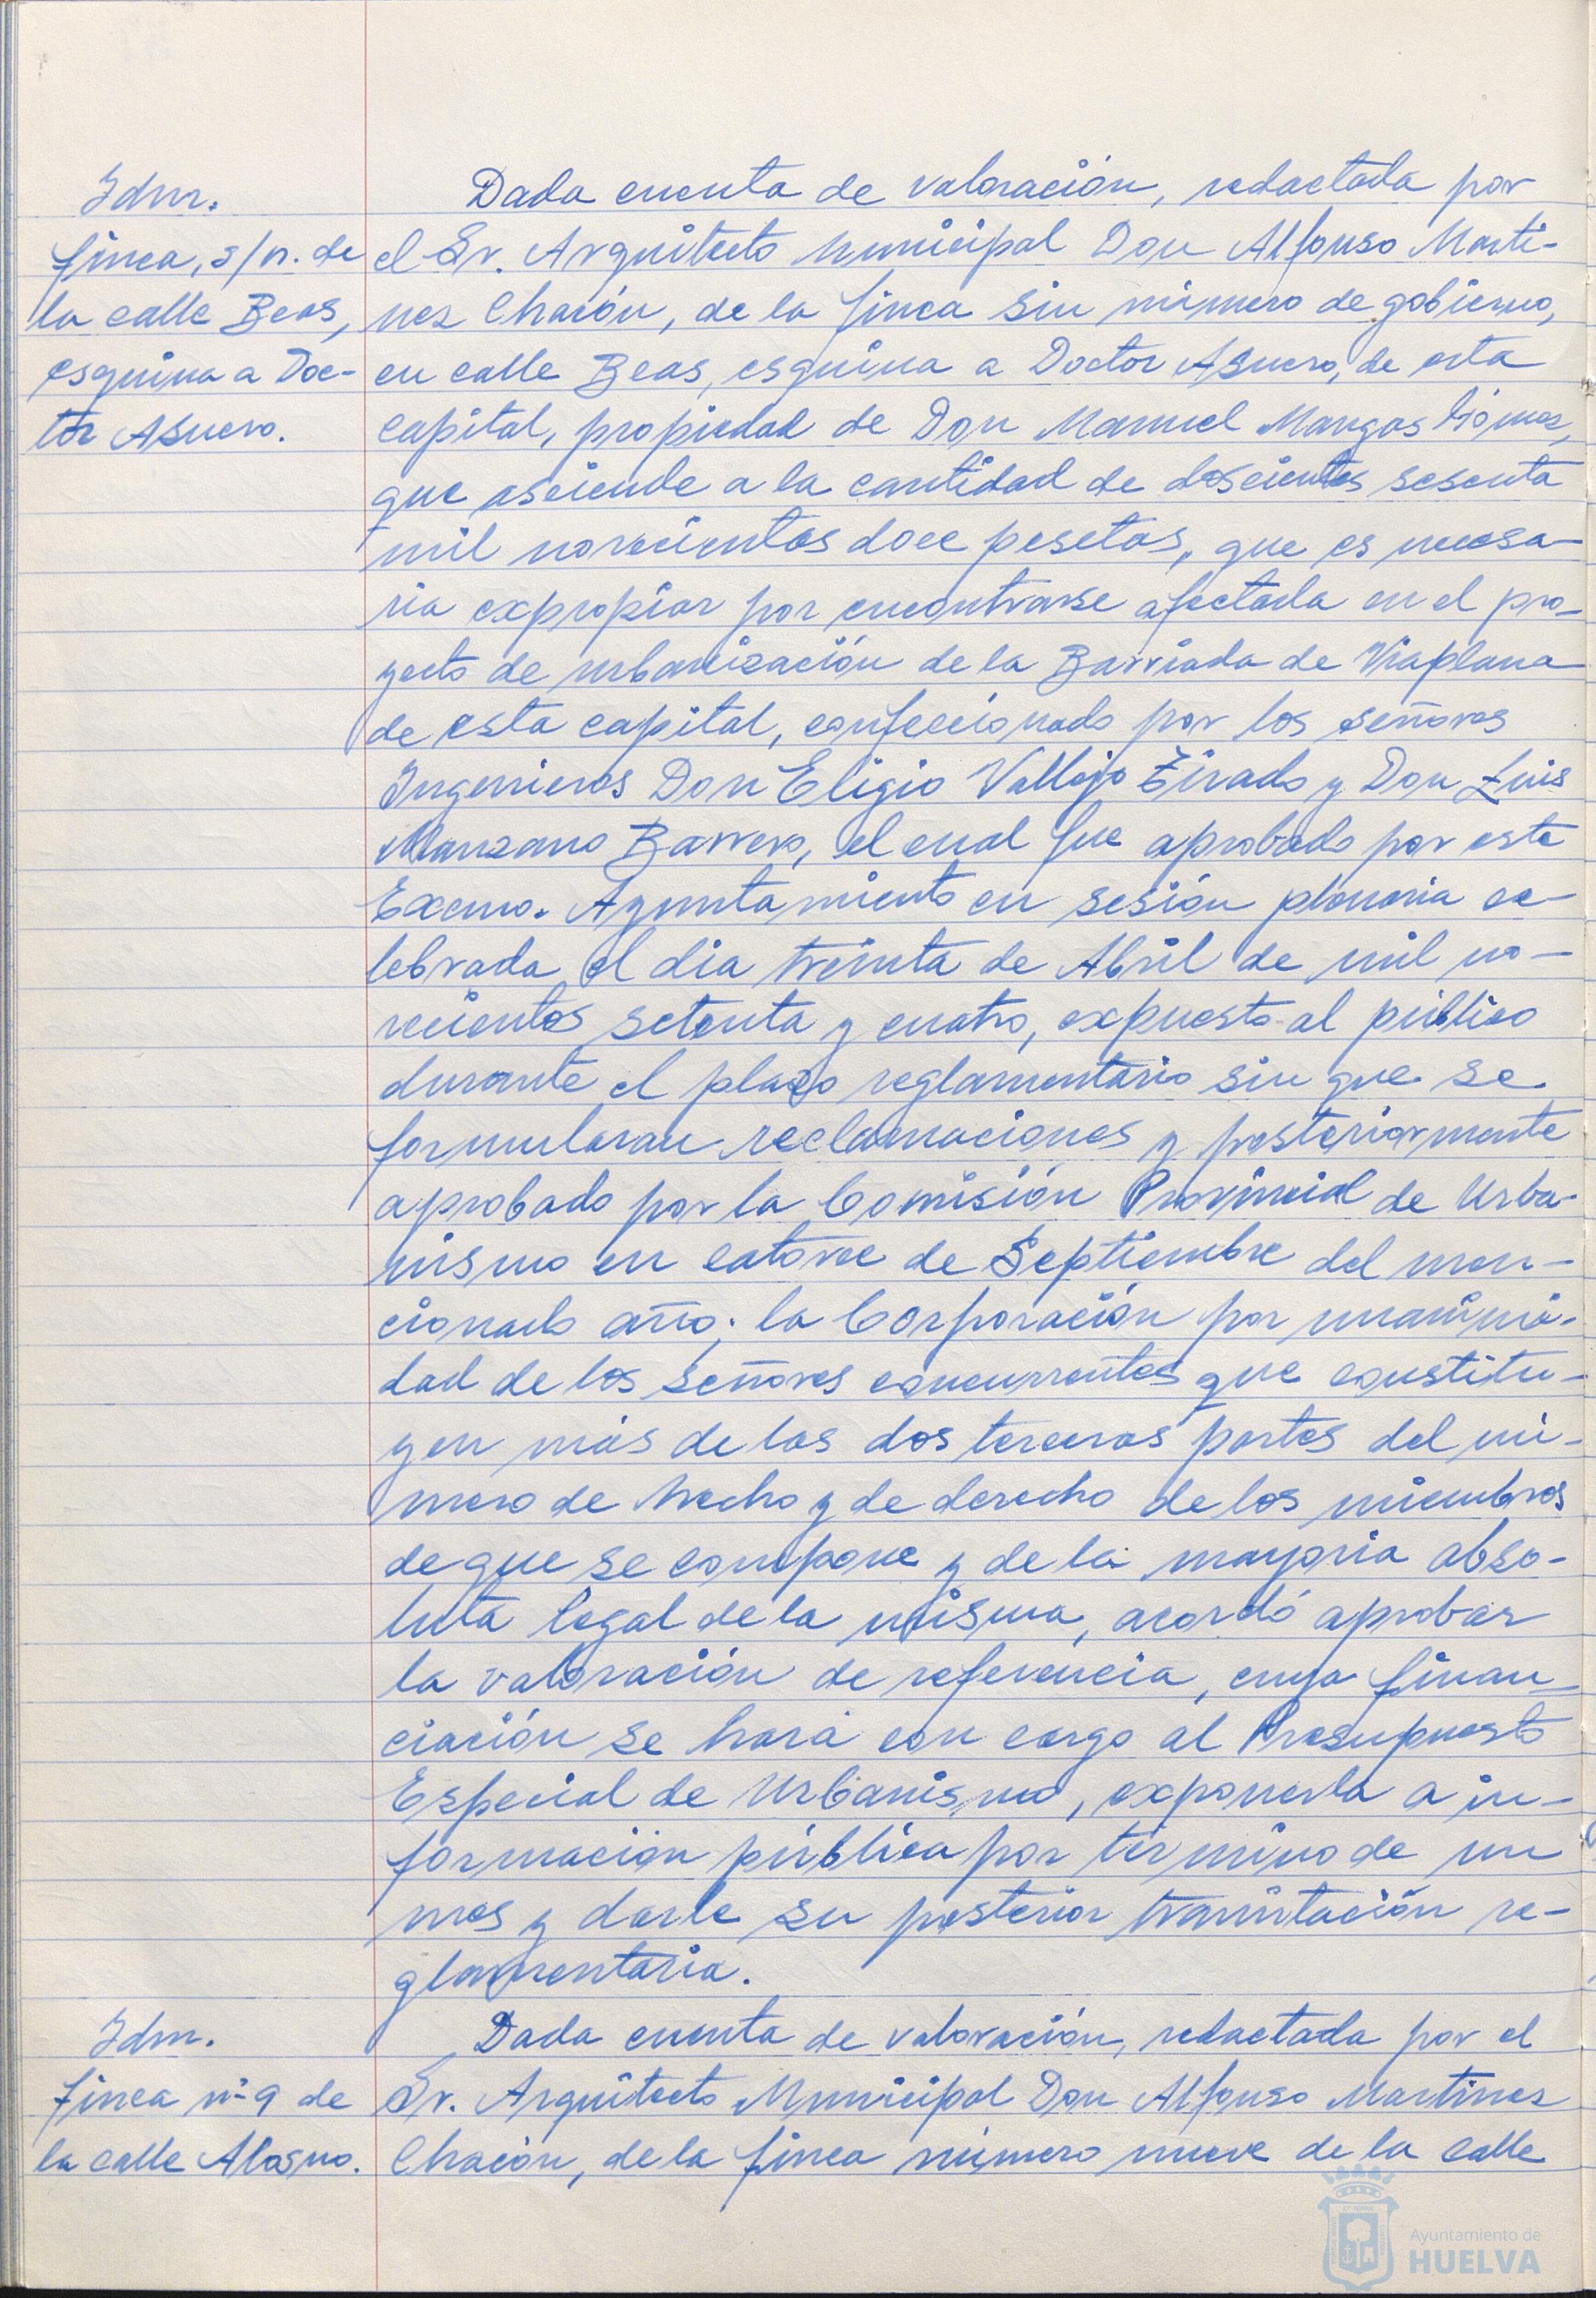 Idm.
finca, s/n. de
la calle Beas,
esquina a Doc-
tor Asuero.
Dada cuenta de valoración, redactada por
el Sr. Arquitecto Municipal Don Alfonso Marti-
nez Chacón, de la finca sin número de gobierno,
en calle Beas, esquina a Doctor Asuero, de esta
capital, propiedad de Don Manuel Mangas Gómez,
que asciende a la cantidad de doscientas sesenta
mil novecientas doce pesetas, que es necesa-
ria expropiar por encontrarse afectada en el pro-
yecto de urbanización de la Barriada de Viaplana
de esta capital, confeccionado por los señores
Ingenieros Don Eligio Vallejo Tirado y Don Luis
Manzano Barrero, el cual fue aprobado por este
Excmo. Ayuntamiento en sesión plenaria ce-
lebrada el dia treinta de Abril de mil no-
vecientos setenta y cuatro, expuesto al público
durante el plazo reglamentario sin que se
formularan reclamaciones y posteriormente
aprobado por la Comisión Provincial de Urba-
nismo en catorce de Septiembre del men-
cionado año; la Corporación por unanimi-
dad de los señores concurrentes que constitu-
yen más de las dos terceras partes del nú-
mero de hecho y de derecho de los miembros
de que se compone y de la mayoria abso-
luta legal de la misma, acordó aprobar
la valoración de referencia, cuya finan-
ciación se hará con cargo al Presupuesto
Especial de Urbanismo, exponerla a in-
formación pública por término de un
mes y darle su posterior tramitación re-
glamentaria.
Idm.
finca nº 9 de
la calle Alosno.
Dada cuenta de valoración, redactada por el
Sr. Arquitecto Municipal Don Alfonso Martinez
Chacón, de la finca número nueve de la calle
Ayuntamiento de
HUELVA